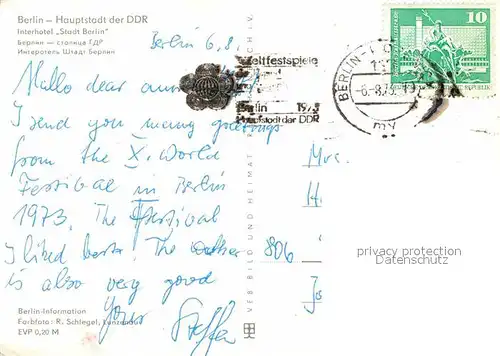 Berlin – Hauptstadt der DDR
Interhotel „Stadt Berlin"
Берлин — столица ГДР
Интеротель Штадт Берлин
Berlin 6.8.
Hallo dear
I send you many greetings
from the X. World
Festival in Berlin
1973. The festival
I liked best. The
is also very good
Your
Steffen
Berlin-Information
Farbfoto: R. Schlegel, Lunzenau
EVP 0,20 M
VEB BILD UND HEIMAT
Weltfestspiele
Berlin 1973
Hauptstadt der DDR
BERLIN
-6.-8.73
my
10
Mrs.
H.
806
privacy protection
Datenschutz